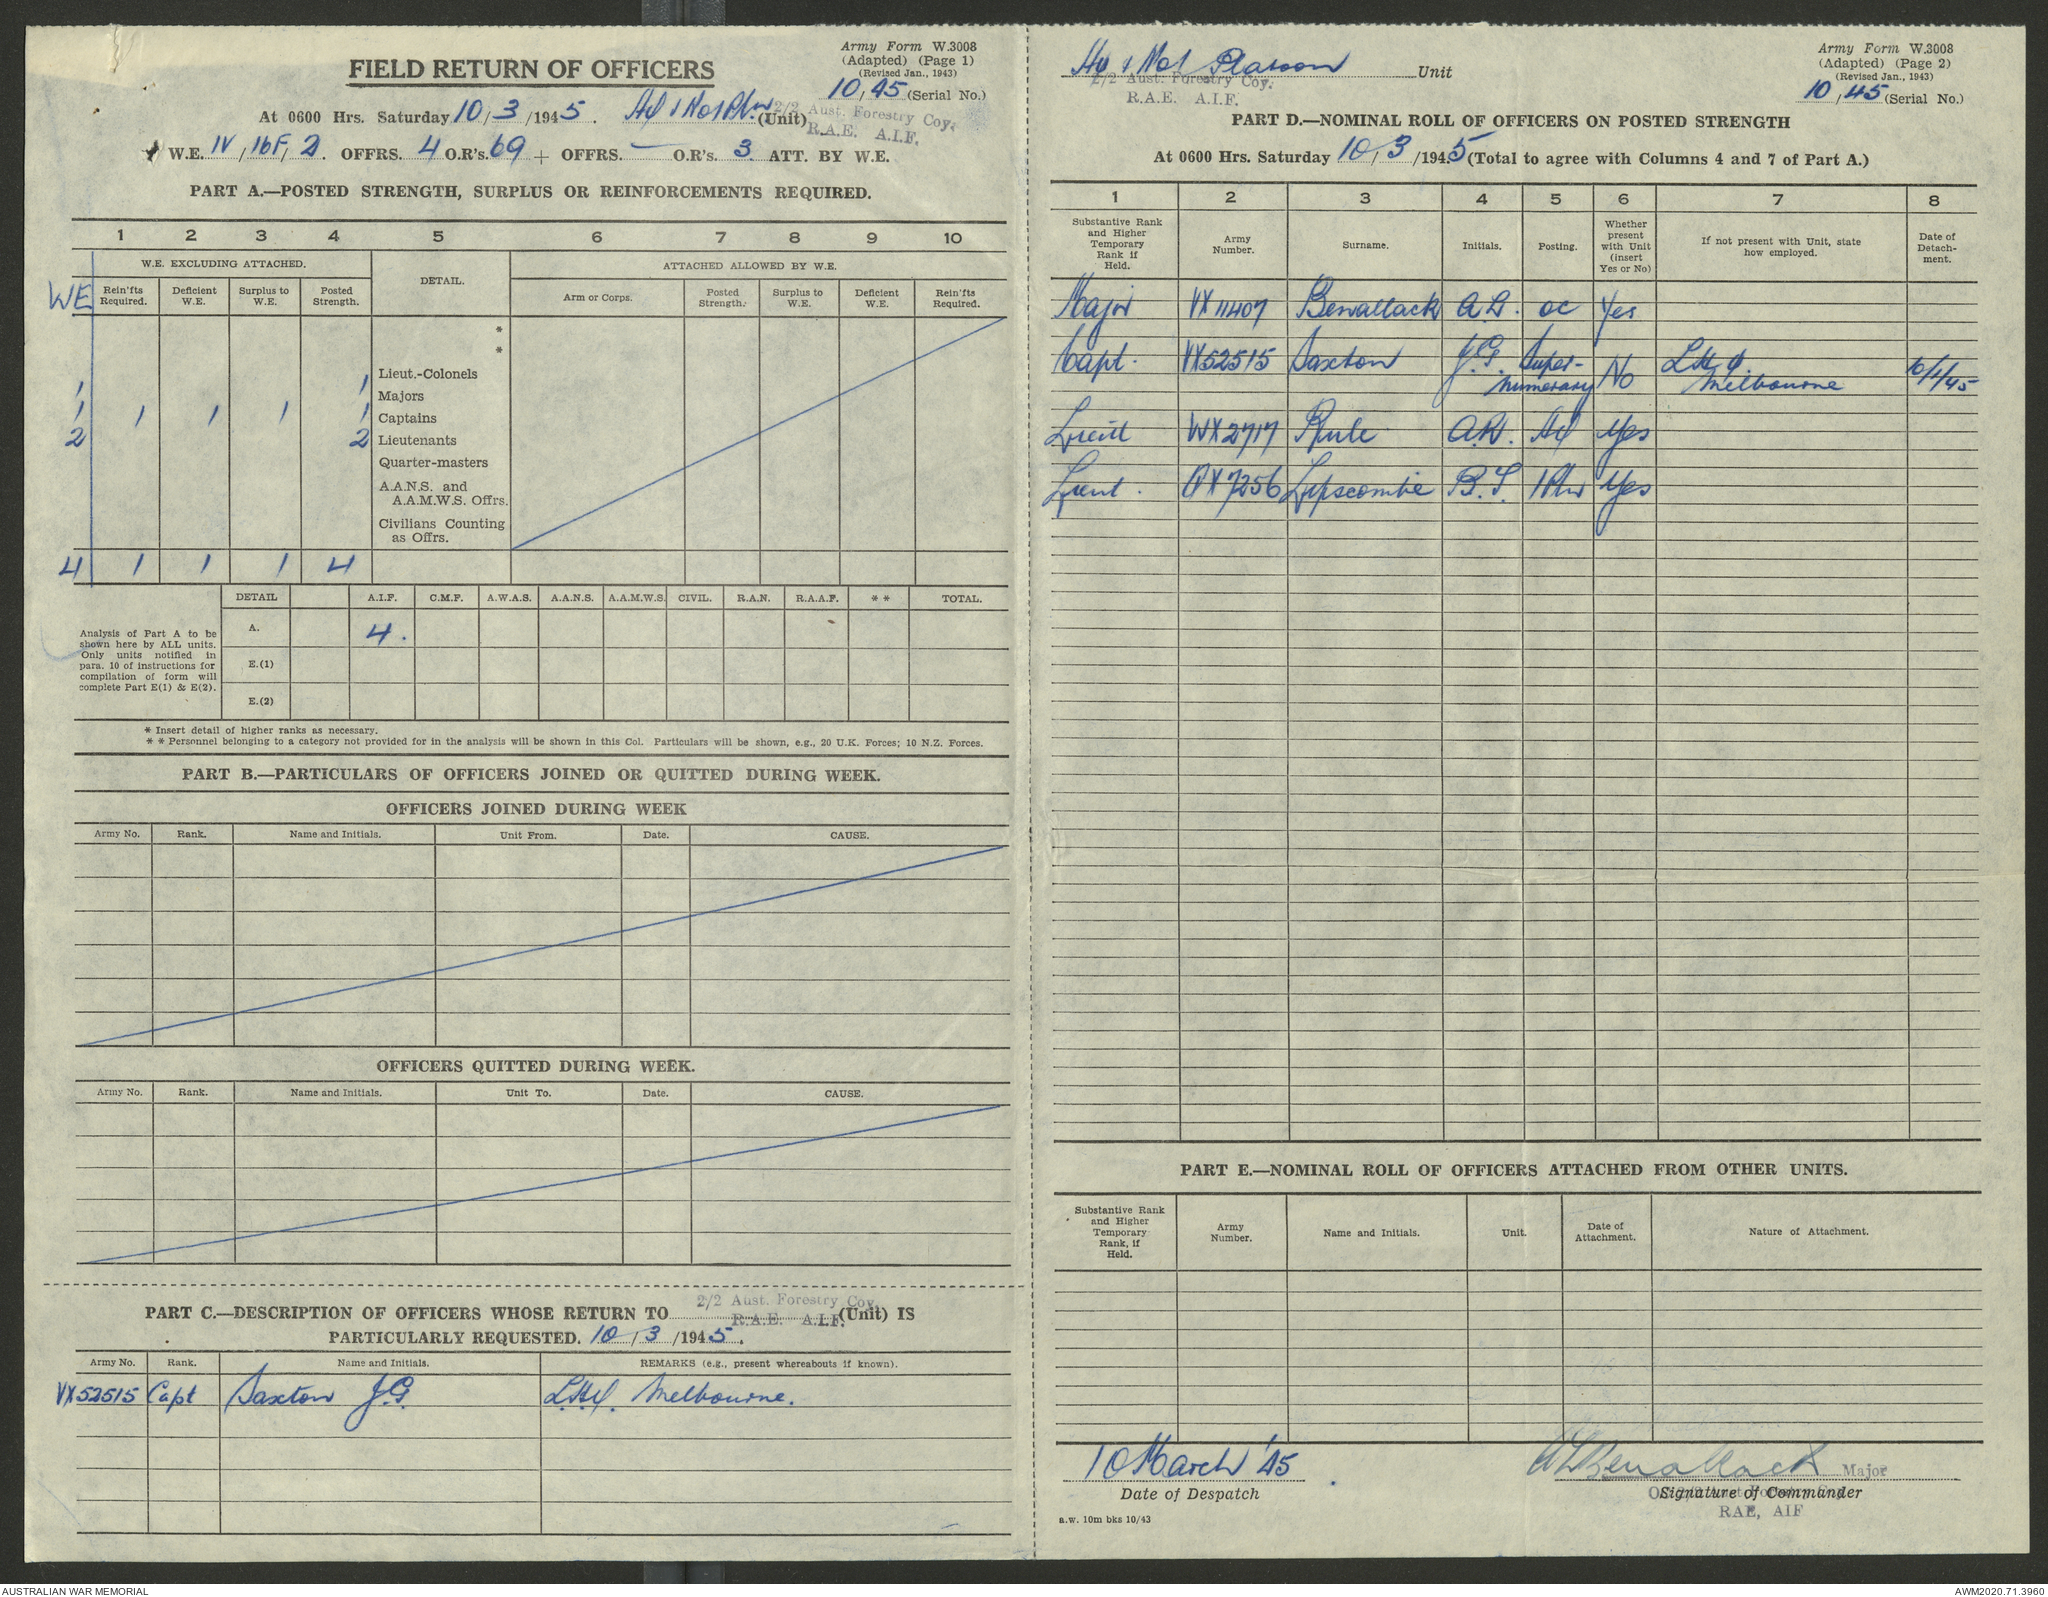 Army Form W.3008
(Adapted) (Page 1)
(Revised Jan., 1943)
10/45 (Serial No.)
FIELD RETURN OF OFFICERS
At 0600 Hrs. Saturday 10/3/1945. (Unit)
2/2 Aust. Forestry Coy.
R.A.E. A.I.F.
W.E. IV/16F/2. OFFRS. 4 O.R's. 69 + OFFRS. — O.R's. 3 ATT. BY W.E.
PART A.—POSTED STRENGTH, SURPLUS OR REINFORCEMENTS REQUIRED.
1 2 3 4 5 6 7 8 9 10
W.E. EXCLUDING ATTACHED. DETAIL. ATTACHED ALLOWED BY W.E.
WE Rein'fts Required. Deficient W.E. Surplus to W.E. Posted Strength. Arm or Corps. Posted Strength. Surplus to W.E. Deficient W.E. Rein'fts Required.
*
*
Lieut.-Colonels
1 1 Majors
1 1 1 1 1 Captains
2 2 Lieutenants
Quarter-masters
A.A.N.S. and
A.A.M.W.S. Offrs.
Civilians Counting
as Offrs.
4 1 1 1 4
DETAIL A.I.F. C.M.F. A.W.A.S. A.A.N.S. A.A.M.W.S. CIVIL. R.A.N. R.A.A.F. * * TOTAL.
Analysis of Part A to be
shown here by ALL units.
Only units notified in
para. 10 of instructions for
compilation of form will
complete Part E(1) & E(2).
A. 4.
E.(1)
E.(2)
* Insert detail of higher ranks as necessary.
* * Personnel belonging to a category not provided for in the analysis will be shown in this Col. Particulars will be shown, e.g., 20 U.K. Forces; 10 N.Z. Forces.
PART B.—PARTICULARS OF OFFICERS JOINED OR QUITTED DURING WEEK.
OFFICERS JOINED DURING WEEK
Army No. Rank. Name and Initials. Unit From. Date. CAUSE.
OFFICERS QUITTED DURING WEEK.
Army No. Rank. Name and Initials. Unit To. Date. CAUSE.
PART C.—DESCRIPTION OF OFFICERS WHOSE RETURN TO 2/2 Aust. Forestry Coy. R.A.E. A.I.F. (Unit) IS
PARTICULARLY REQUESTED. 10/3/1945.
Army No. Rank. Name and Initials. REMARKS (e.g., present whereabouts if known).
VX52515 Capt Saxton J.G. L.H.Q. Melbourne.
Hq & No1 Platoon Unit
2/2 Aust. Forestry Coy.
R.A.E. A.I.F.
Army Form W.3008
(Adapted) (Page 2)
(Revised Jan., 1943)
10/45 (Serial No.)
PART D.—NOMINAL ROLL OF OFFICERS ON POSTED STRENGTH
At 0600 Hrs. Saturday 10/3/1945 (Total to agree with Columns 4 and 7 of Part A.)
1 2 3 4 5 6 7 8
Substantive Rank and Higher Temporary Rank if Held. Army Number. Surname. Initials. Posting. Whether present with Unit (insert Yes or No) If not present with Unit, state how employed. Date of Detachment.
Major VX11407 Benallack A.L. OC Yes
Capt. VX52515 Saxton J.G. Super-numerary No LHQ. Melbourne 10/1/45
Lieut WX2717 Rule A.H. HQ Yes
Lieut. QX7256 Lipscombe B.T. 1 Pln Yes
PART E.—NOMINAL ROLL OF OFFICERS ATTACHED FROM OTHER UNITS.
Substantive Rank and Higher Temporary Rank, if Held. Army Number. Name and Initials. Unit. Date of Attachment. Nature of Attachment.
10 March '45
Date of Despatch
AL Benallack Major
Signature of Commander
RAE, AIF
a.w. 10m bks 10/43
AUSTRALIAN WAR MEMORIAL
AWM2020.71.3960